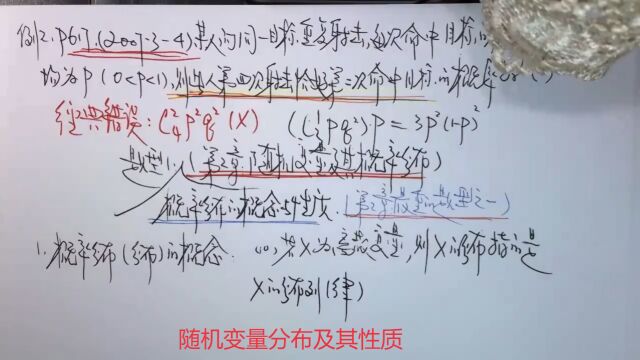 例2. P617 (2007-3-4) 某人向同一目标重复射击, 每次命中目标的
均为P (0<p<1), 则此人第四次射击恰好第二次命中目标的概率为( )
经典错误: C₄²p²q² (X) (C₃¹pq²)p = 3p²(1-p)²
题型1: (第2章 随机变量及其概率分布)
概率分布的概念与性质. (第2章 最重要的题型之一)
1. 概率分布(分布)的概念. (1) 若X为离散变量, 则X的分布指的是
X的分布列(律)
随机变量分布及其性质